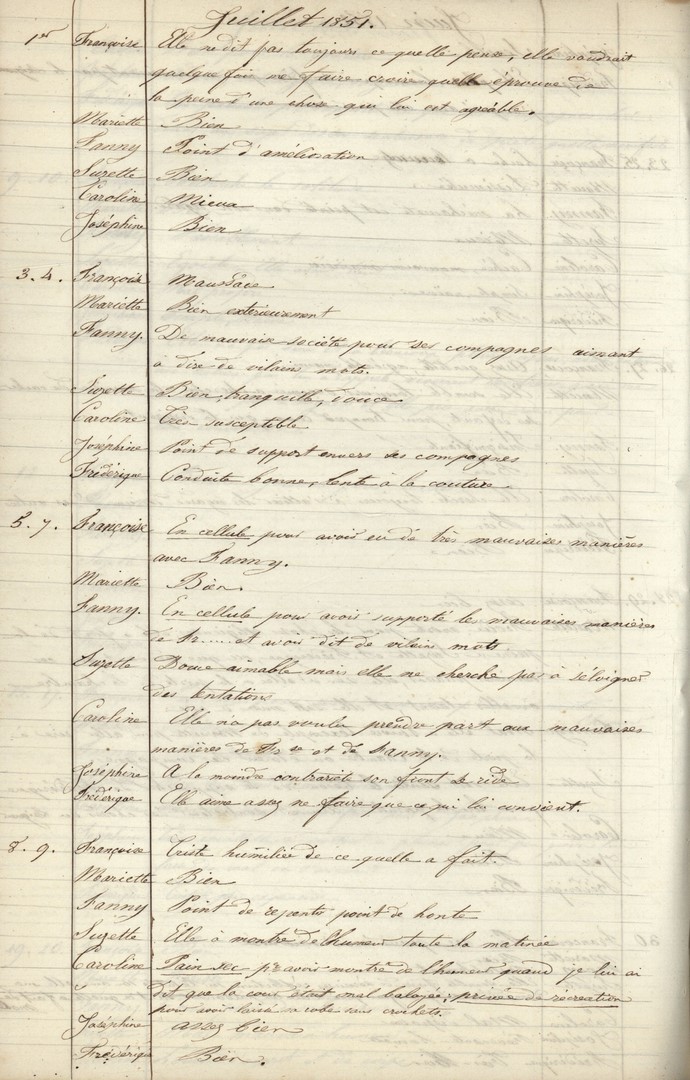 Juillet 1851.
1er Françoise Elle ne dit pas toujours ce quelle pense, elle voudrait
quelque fois me faire croire quelle éprouve de
la peine d'une chose qui lui est agréable.
Mariette Bien
Fanny Point d'amélioration
Suzette Bien
Caroline Mieux
Joséphine Bien
3. 4. Françoise Maussade
Mariette Bien extérieurement
Fanny. De mauvaise société pour ses compagnes aimant
à dire de vilains mots.
Suzette Bien, tranquille, douce
Caroline Très susceptible
Joséphine Point de support envers ses compagnes
Frédérique Conduite bonne, lente à la couture
5. 7. Françoise En cellule pour avoir eu de très mauvaises manières
avec Fanny.
Mariette Bien.
Fanny. En cellule pour avoir supporté les mauvaises manières
de Fr..... et avoir dit de vilains mots
Suzette Douce aimable mais elle ne cherche pas à s'éloigner
des tentations
Caroline Elle n'a pas voulu prendre part aux mauvaises
manières de Fr se et de Fanny.
Joséphine A la moindre contrariété son front se ride
Frédérique Elle aime assez ne faire que ce qui lui convient.
8. 9. Françoise Triste humiliée de ce quelle a fait.
Mariette Bien
Fanny Point de repentir point de honte
Suzette Elle à montré de l'humeur toute la matinée
Caroline Pain sec pr avoir montré de l'humeur quand je lui ai
dit que la cour était mal balayée; privée de récréation
pour avoir laissé sa robe sans crochets.
Joséphine assez bien
Frédérique Bien.